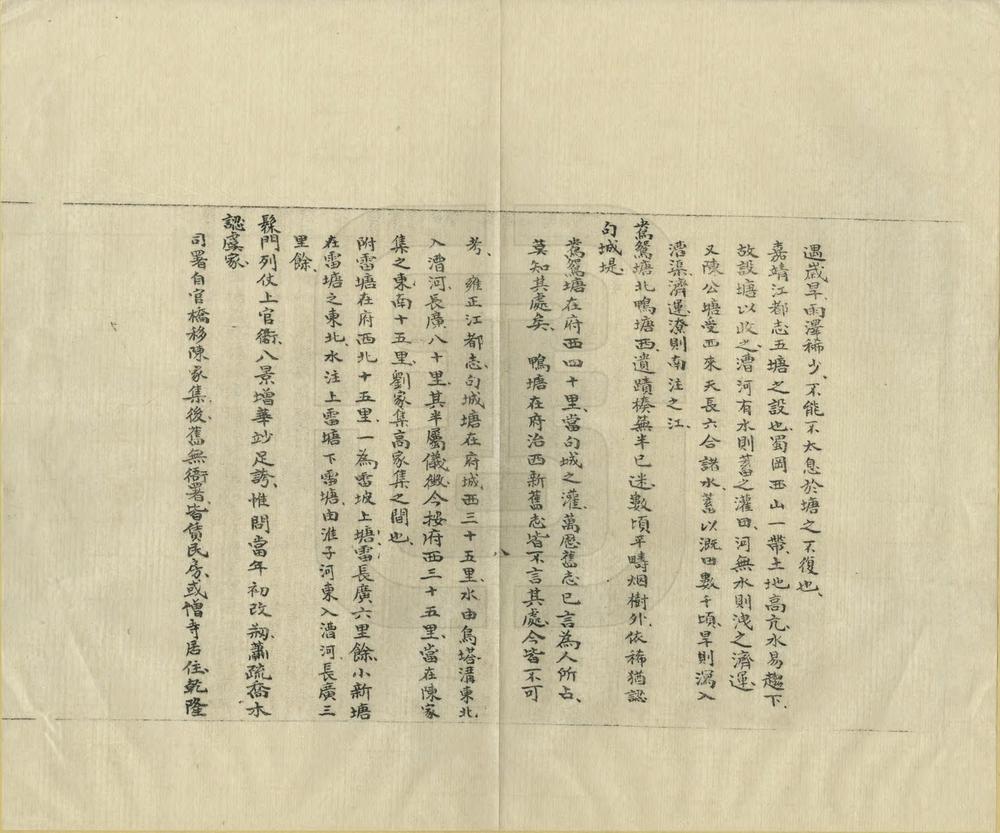 遇歲旱雨澤稀少、不能不太息於塘之不復也、
嘉靖江都志五塘之設也蜀岡西山一帶、土地高亢水易趨下、
故設塘以收之、漕河有水則蓄之灌田、河無水則洩之濟運
又陳公塘受西來天長六合諸水、蓄以溉田數千頃、旱則瀉入
漕渠濟運潦則南注之江、
鴛鴛塘北鴨塘西遺蹟榛蕪半已迷數頃平疇烟樹外、依稀猶認
句城堤、
鴛鴛塘在府西四十里、當句城之灌、萬歷舊志已言為人所占、
莫知其處矣、 鴨塘在府治西新舊志皆不言其處、今皆不可
八
考、 雍正江都志句城塘在府城西三十五里、水由烏塔溝東北
入漕河、長廣八十里、其半屬儀徵今按府西三十五里、當在陳家
集之東南十五里、劉家集高家集之間也、
附雷塘在府西北十五里、一為雷坡上塘雷長廣六里餘、小新塘
在雷塘之東北、水注上雷塘下雷塘、由淮子河東入漕河、長廣三
里餘、
縣門列仗上官衙、八景增華竗足誇、惟問當年初改剏蕭疏喬木
認虞家、
司署自官橋移陳家集、後舊無衙署、皆賃民房或僧寺居住、乾隆